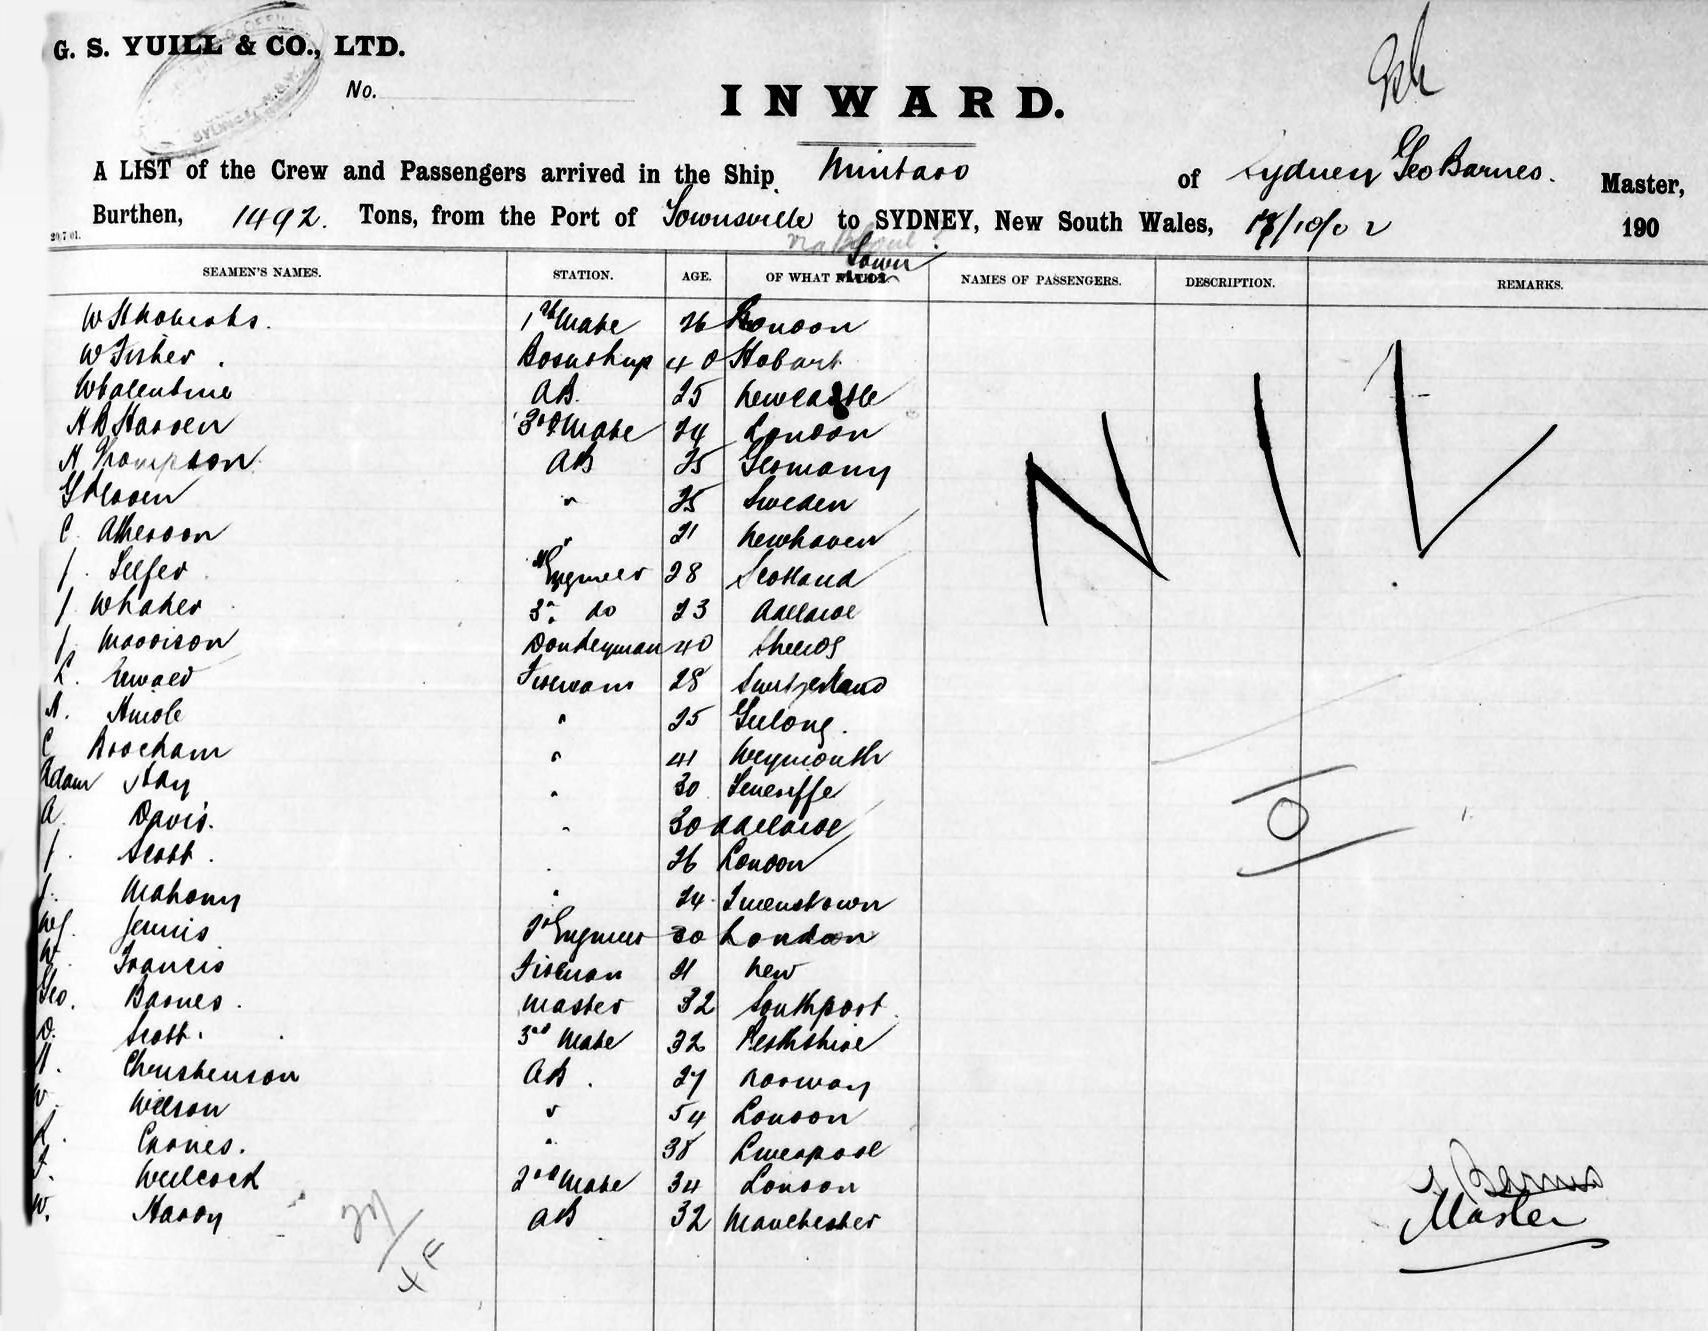 G. S. YUILL & CO., LTD.
No.
INWARD.
A LIST of the Crew and Passengers arrived in the Ship Mintaro of Sydney Geo Barnes. Master,
Burthen, 1492. Tons, from the Port of Townsville to SYDNEY, New South Wales, 18/10/02 190
20/7/01.
Town
SEAMEN'S NAMES. STATION. AGE. OF WHAT NATION. NAMES OF PASSENGERS. DESCRIPTION. REMARKS.
NIL
W St Roberts. 1st Mate 26 London
W Fisher. 40 Hobart
W Valentine AB. 25 Newcastle
H B Harden 3rd Mate 24 London
H Thompson AB 25 Germany
G " 25 Sweden
C. " 21 Newhaven
J. Telfer Engineer 28 Scotland
J. Whaker 3rd do 23 Adelaide
J. Morrison Donkeyman 40 Shields
L. Fireman 28 Switzerland
H. " 25 Geelong.
C " 41 Weymouth
Adam Hay " 30 Teneriffe
A. Davis. " 30 Adelaide
J. Scott. " 26 London
J. Mahony " 24 Queenstown
WJ. Jennis 2nd Engineer 30 London
W. Francis Fireman 21 New
Geo. Barnes. Master 32 Southport.
D. Scott. 3rd Mate 32 Perthshire
H. Christenson AB. 27 Norway
W. Wilson " 54 London
" 38 Liverpool
F. Willcock 2nd Mate 34 London
W. Hardy AB 32 Manchester
Barnes
Master